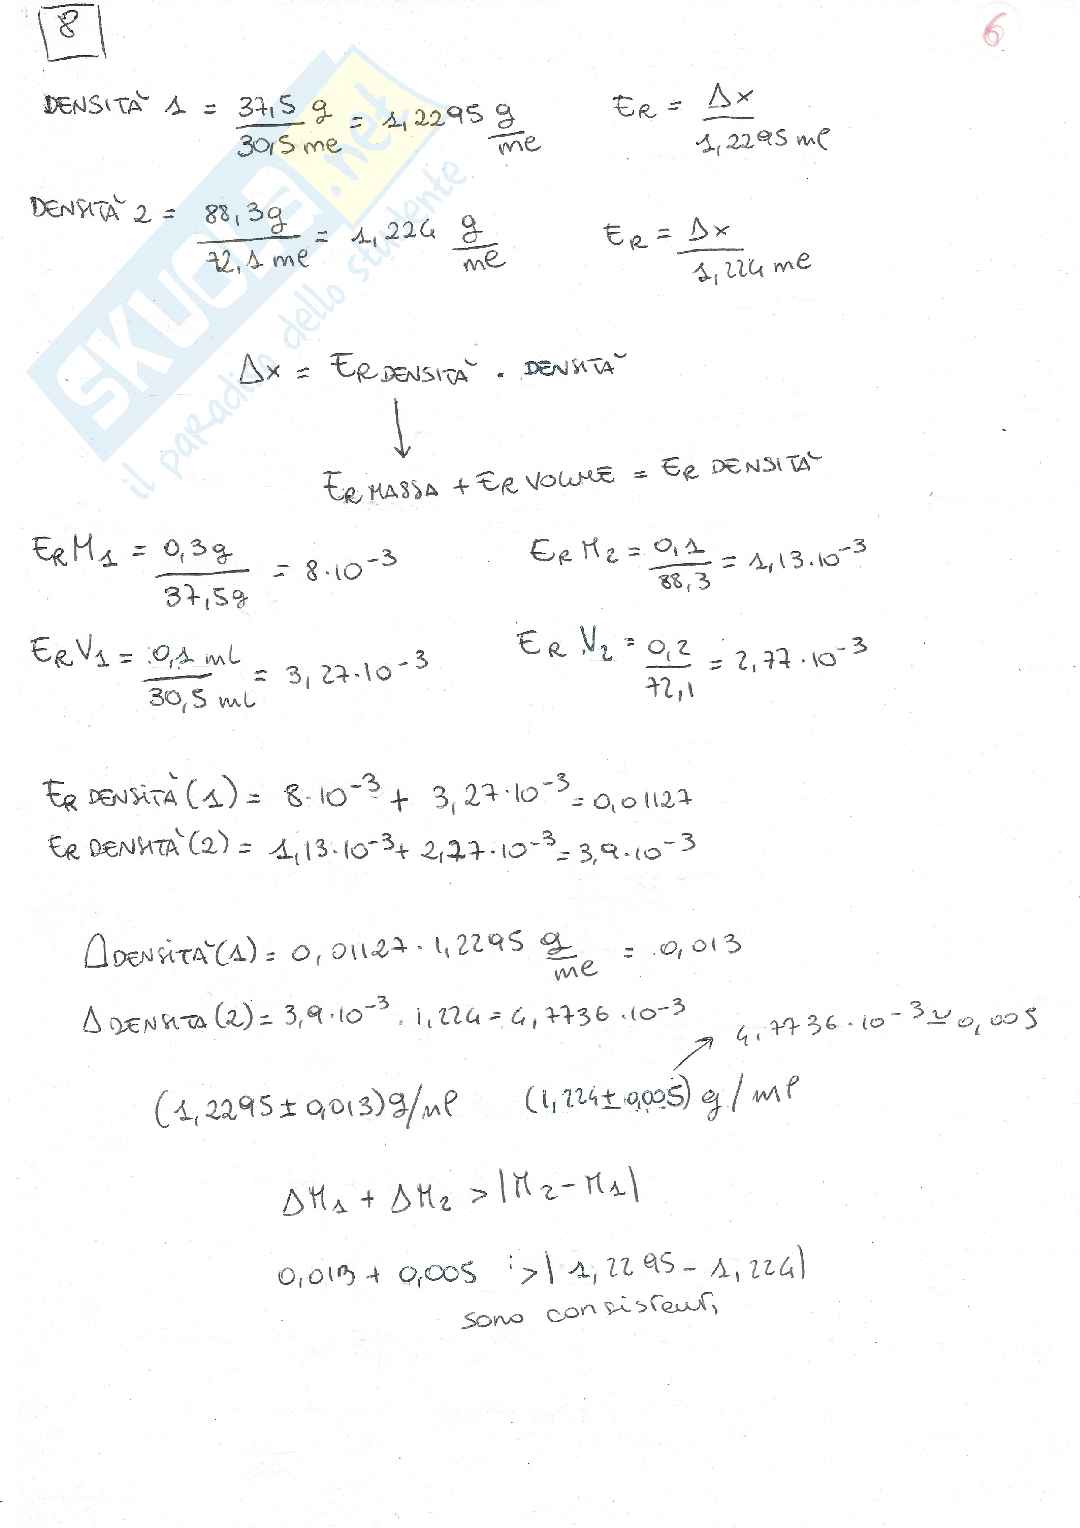 8
6
DENSITÀ 1 = 37,5 g / 30,5 ml = 1,2295 g/ml    ER = Δx / 1,2295 ml
DENSITÀ 2 = 88,3g / 72,1 ml = 1,224 g/ml    ER = Δx / 1,224 ml
Δx = ER DENSITÀ · DENSITÀ
↓
ER MASSA + ER VOLUME = ER DENSITÀ
ER M1 = 0,3g / 37,5g = 8·10⁻³    ER M2 = 0,1 / 88,3 = 1,13·10⁻³
ER V1 = 0,1 ml / 30,5 ml = 3,27·10⁻³    ER V2 = 0,2 / 72,1 = 2,77·10⁻³
ER DENSITÀ (1) = 8·10⁻³ + 3,27·10⁻³ = 0,01127
ER DENSITÀ (2) = 1,13·10⁻³ + 2,77·10⁻³ = 3,9·10⁻³
Δ DENSITÀ (1) = 0,01127 · 1,2295 g/ml = 0,013
Δ DENSITÀ (2) = 3,9·10⁻³ · 1,224 = 4,7736·10⁻³
4,7736·10⁻³ ≃ 0,005
(1,2295 ± 0,013) g/ml    (1,224 ± 0,005) g/ml
ΔM1 + ΔM2 > |M2 - M1|
0,013 + 0,005 > | 1,2295 - 1,224|
sono consistenti
SKUOLA.net
il paradiso dello studente